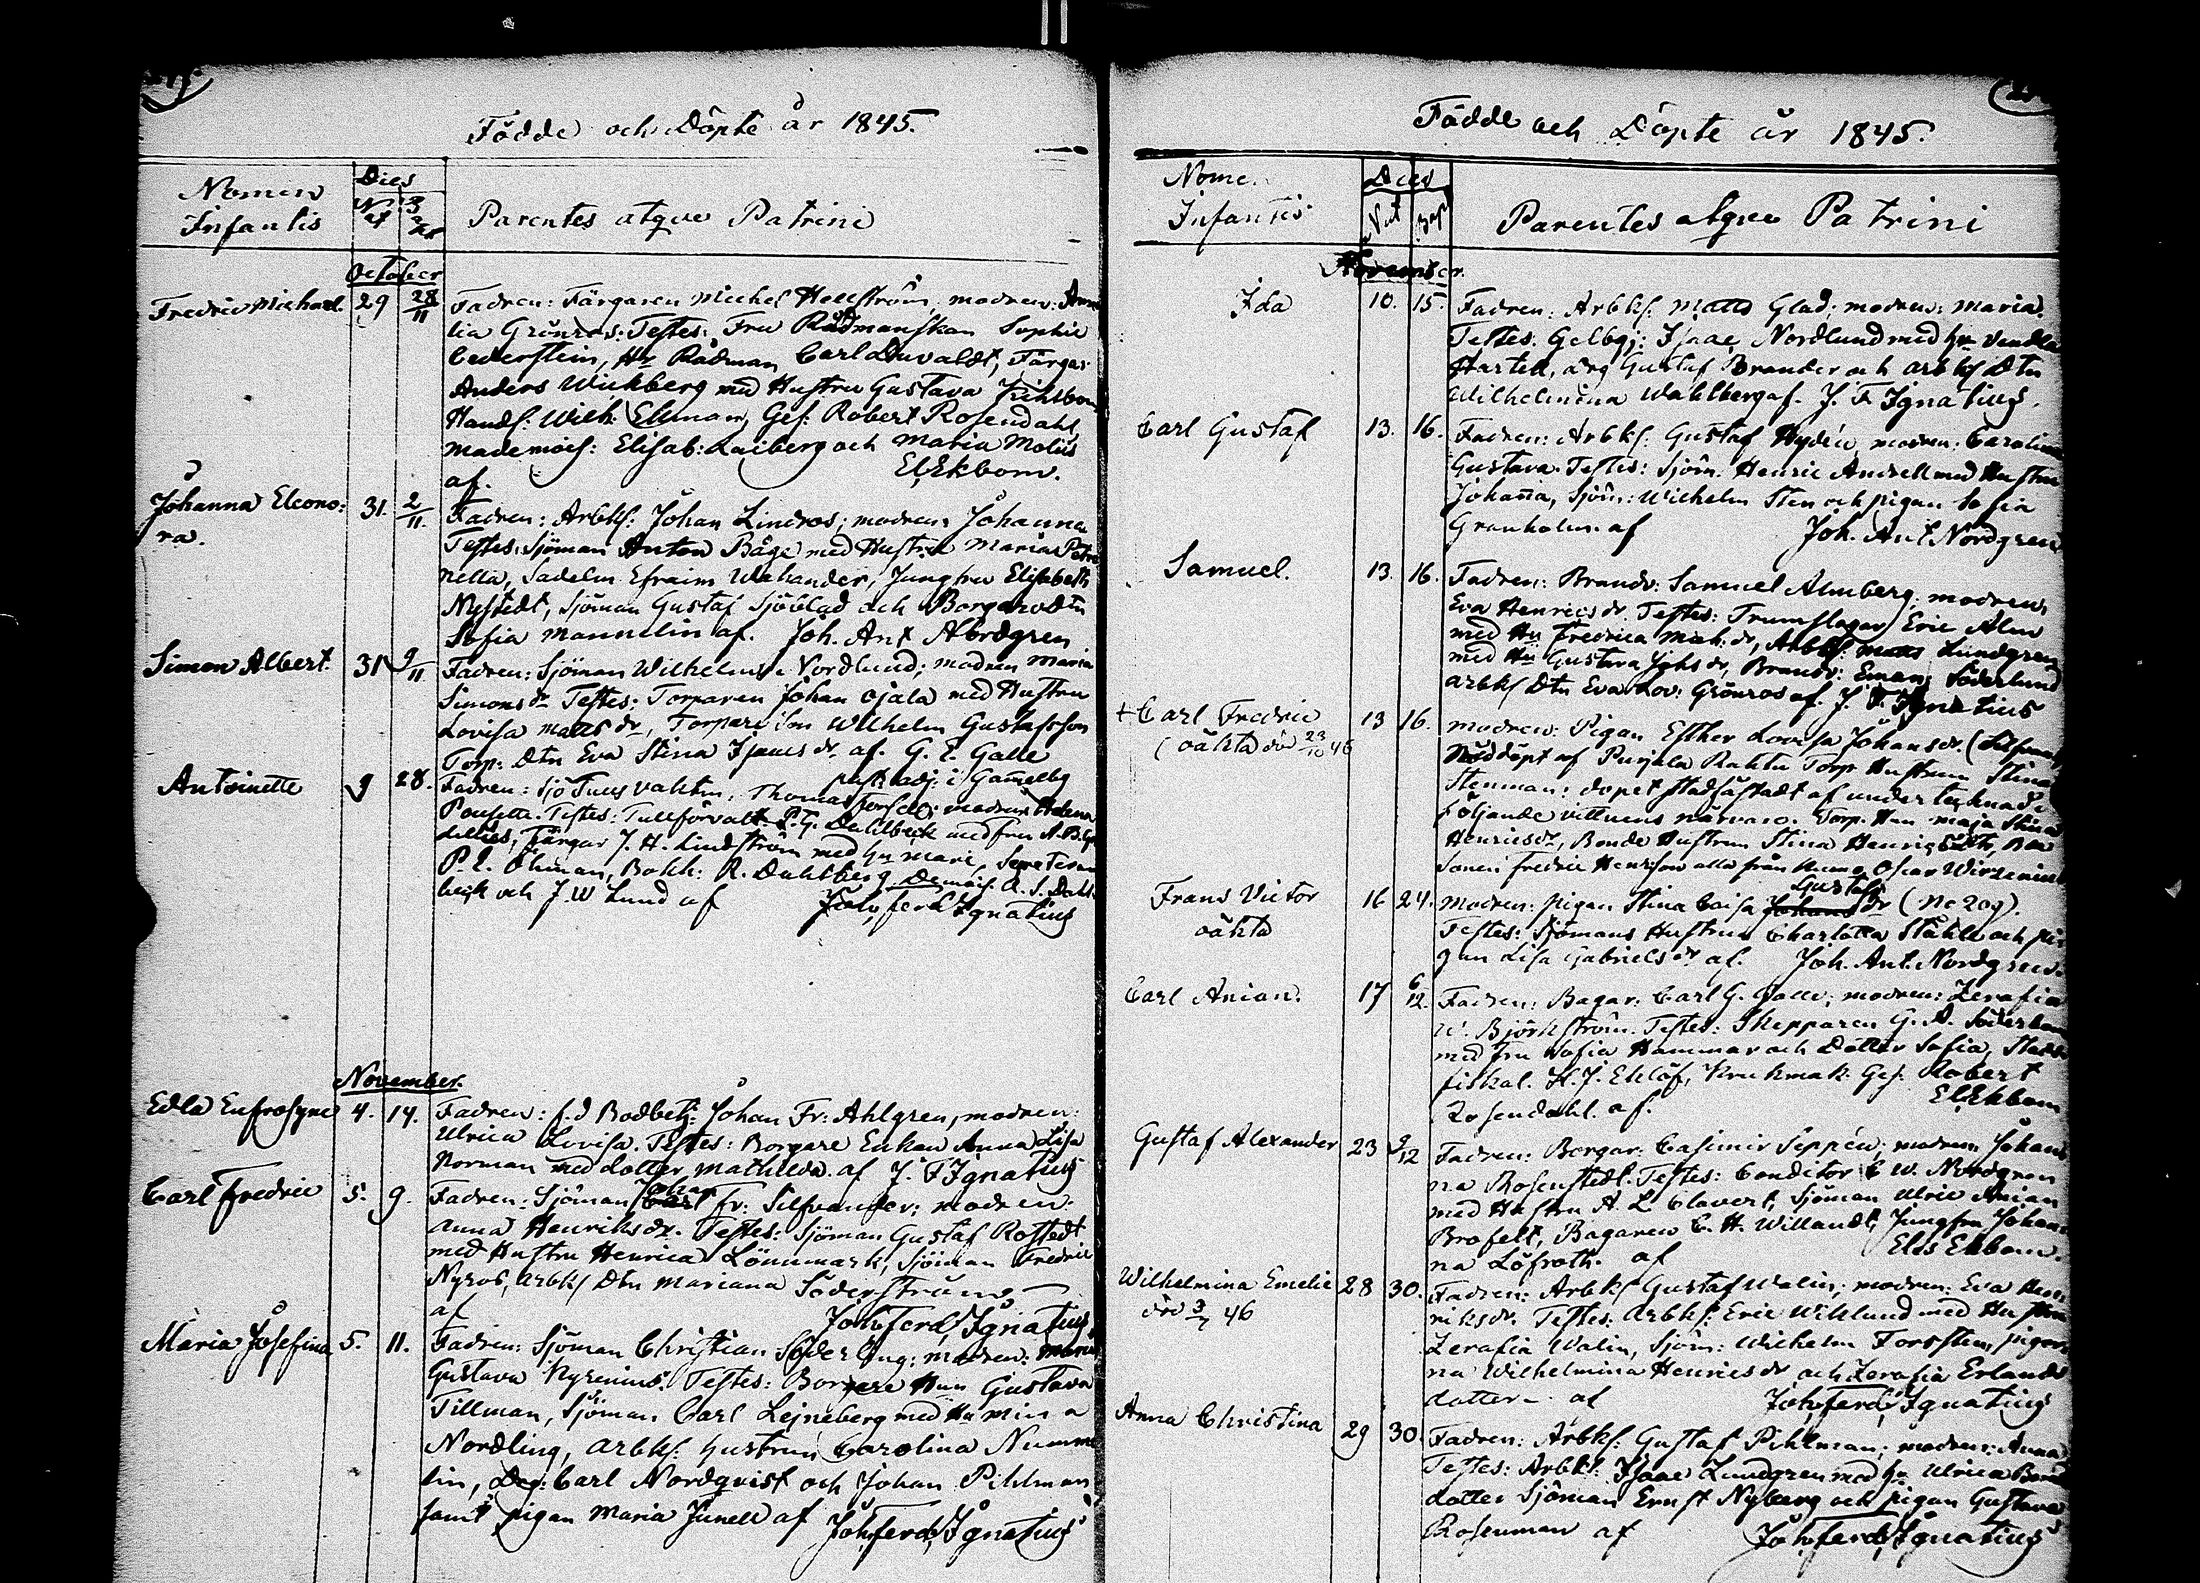 Födde och Döpte år 1845.
Nomen
Infantis
Dies
Nat
Bap
Parentes atque Patrini
October
Fredric Michael. 29 28/11 Fadren: Färgaren Michel Hellström, modren:
lia Grönroos. Testes: Fru Rådmanskan Sophie
Cederstein, Hr Rådman Carl Duvaldt, Färgar
Anders Wickberg med Hustru Gustava
Handl: Wilh: Ekman, Ges: Robert Rosendahl
mademois: Elisab: Laiberg och Maria Moliis
af. El. Ekbom.
Johanna Eleono- 31. 2/11. Fadren: Arbks: Johan Lindros; modren: Johanna
ra. Testes: Sjöman Anton Båge med Hustru Maria Petro
nella, Sadelm Efraim Welander, Jungfru Elisabeth
Nystedt, Sjöman Gustaf Sjöblad och Borgaredtn
Sofia Mannelin af. Joh. Ant Nordgren
Simon Albert 31 9/11 Fadren: Sjöman Wilhelm Nordlund; modren Maria
Simonsdr Testes: Torparen Johan Ojala med Hustru
Lovisa Mattsdr, Torpare Son Wilhelm Gustafsson
Torp: Dtn Eva Stina Isaacsdr. af. G. E. Galle
past: adj: i Gamelby
Antoinette 9 28. Fadren: Sjö Tull vaktm. Thomas modren: Helena
Pousette. Testes: Tullförvalt. P. G. Dahlbeck med fru
Färgar J. H. Lindström med hu Marie,
P. E. Öhman, Bokh: R. Dahlberg Demois: A. S. Dahl-
beck och J. W Lund af Joh. ferd. Ignatius
November.
Edla Eufrosyne 4. 14. Fadren: f.d Bodbetj: Johan Fr: Ahlgren, modren:
Ulrica Lovisa. Testes: Borgare Enkan Anna Lisa
Norman med dotter Mathilda. af J. F Ignatius
Carl Fredric 5. 9. Fadren: Sjöman Johan Fr: Silfvander; modren:
Anna Henriksdr. Testes: Sjöman Gustaf Rostedt
med Hustru Henrica Lönnmark, Sjöman Fredric
Nyros, Arbks Dtn Mariana Söderström
af Joh. ferd. Ignatius
Maria Josefina 5. 11. Fadren: Sjöman Christian Söderling; modren: Maria
Gustava Nyrenius. Testes: Borgare Hun Gustava
Tillman, Sjöman Carl Lejneberg med Hu Mina
Nordling, Arbks: hustrun Carolina Numme
lin, Carl Nordqvist och Johan Pihlman
samt pigan Maria Junell af Joh. ferd. Ignatius
Födde och Döpte år 1845.
Nome.
Infantis
Dies
Nat
Bap
Parentes atque Patrini
November.
Ida 10. 15. Fadren: Arbks: Matts Glad; modren: Maria.
Testes: Gelbgj: Isaac Nordlund med hu Vendla
Hartell, Gustaf Brander och arbks Dtn
Wilhelmina Wahlberg af. J. F Ignatius.
Carl Gustaf 13. 16. Fadren: Arbks: Gustaf Hydén, modren: Carolina
Gustava. Testes: Sjöm. Henric Andrell med Hustru
Johanna, Sjöm: Wilhelm Sten och pigan Sofia
Granholm. af Joh. Ant. Nordgren
Samuel. 13. 16. Fadren: Brandv: Samuel Almberg; modren,
Eva Henricsdr. Testes: Trumslagar Eric Alm
med Hu Fredrica Mich:dr, Arbks: Matts Lundgren
med Hu Gustava Johsdr, Brandv: Eman; Söderlund
arbks Dtn Eva Lov: Grönroos af. J. F. Ignatius
+ Carl Fredric 13 16. modren: Pigan Esther Lovisa Johansdr
(oäkta dör 23/10 46 Nöddöpt af Torp Hustrun Stina
Stenman: dopet stadfästadt af undertecknad i
följande vittnens närvaro. Torp: Hun Maja Stina
Henricsdr, Bonde Hustrun Stina Henricsdtr, Bon
Sonen Fredric Henricson alla från Oscar Wirzenius
Frans Victor 16 24. modren: pigan Stina Caisa Gustafs dr (No 209).
oäkta Testes: Sjömans Hustrun Charlotta Ståhle och pi-
gan Lisa Gabrielsdr af. Joh. Ant. Nordgren.
Carl Anian. 17 6/12. Fadren: Bagar: Carl G. modren: Zerafia
W. Björkström. Testes: Skepparen G. A.
med Fru Sofia Hammar och Dotter Sofia, Stads
fiskal. H. J. Eklöf, Krukmak: Ges: Robert
Rosendahl. af. El. Ekbom
Gustaf Alexander 23 9/12 Fadren: Borgar: Casimir Seppén; modren Johan
na Rosenstedt. Testes: Conditor C W. Nordgren
med Hustru A. L. Clavert, Sjöman Ulric Anian
Brofelt, Bagaren C. H. Willandt, Jungfru Johan
na Löfroth. af Elis Ekbom.
Wilhelmina Emelie 28 30. Fadren: Arbks Gustaf Walin; modren: Eva Hen
dör 3/7 46 riksdr. Testes: Arbks: Eric Wiklund med Hustru
Zerafia Walin, Sjöm: Wilhelm Forssten, pigor
na Wilhelmina Henricsdr och Zerafia Erlands
dotter af Joh. ferd. Ignatius
Anna Christina 29 30. Fadren: Arbks: Gustaf Pihlman; modren: Anna
Testes: Arbks: Isaac Lundgren med hu Ulrica
dotter Sjöman Ernst Nyberg och pigan Gustava
Rosenman af Joh. ferd. Ignatius